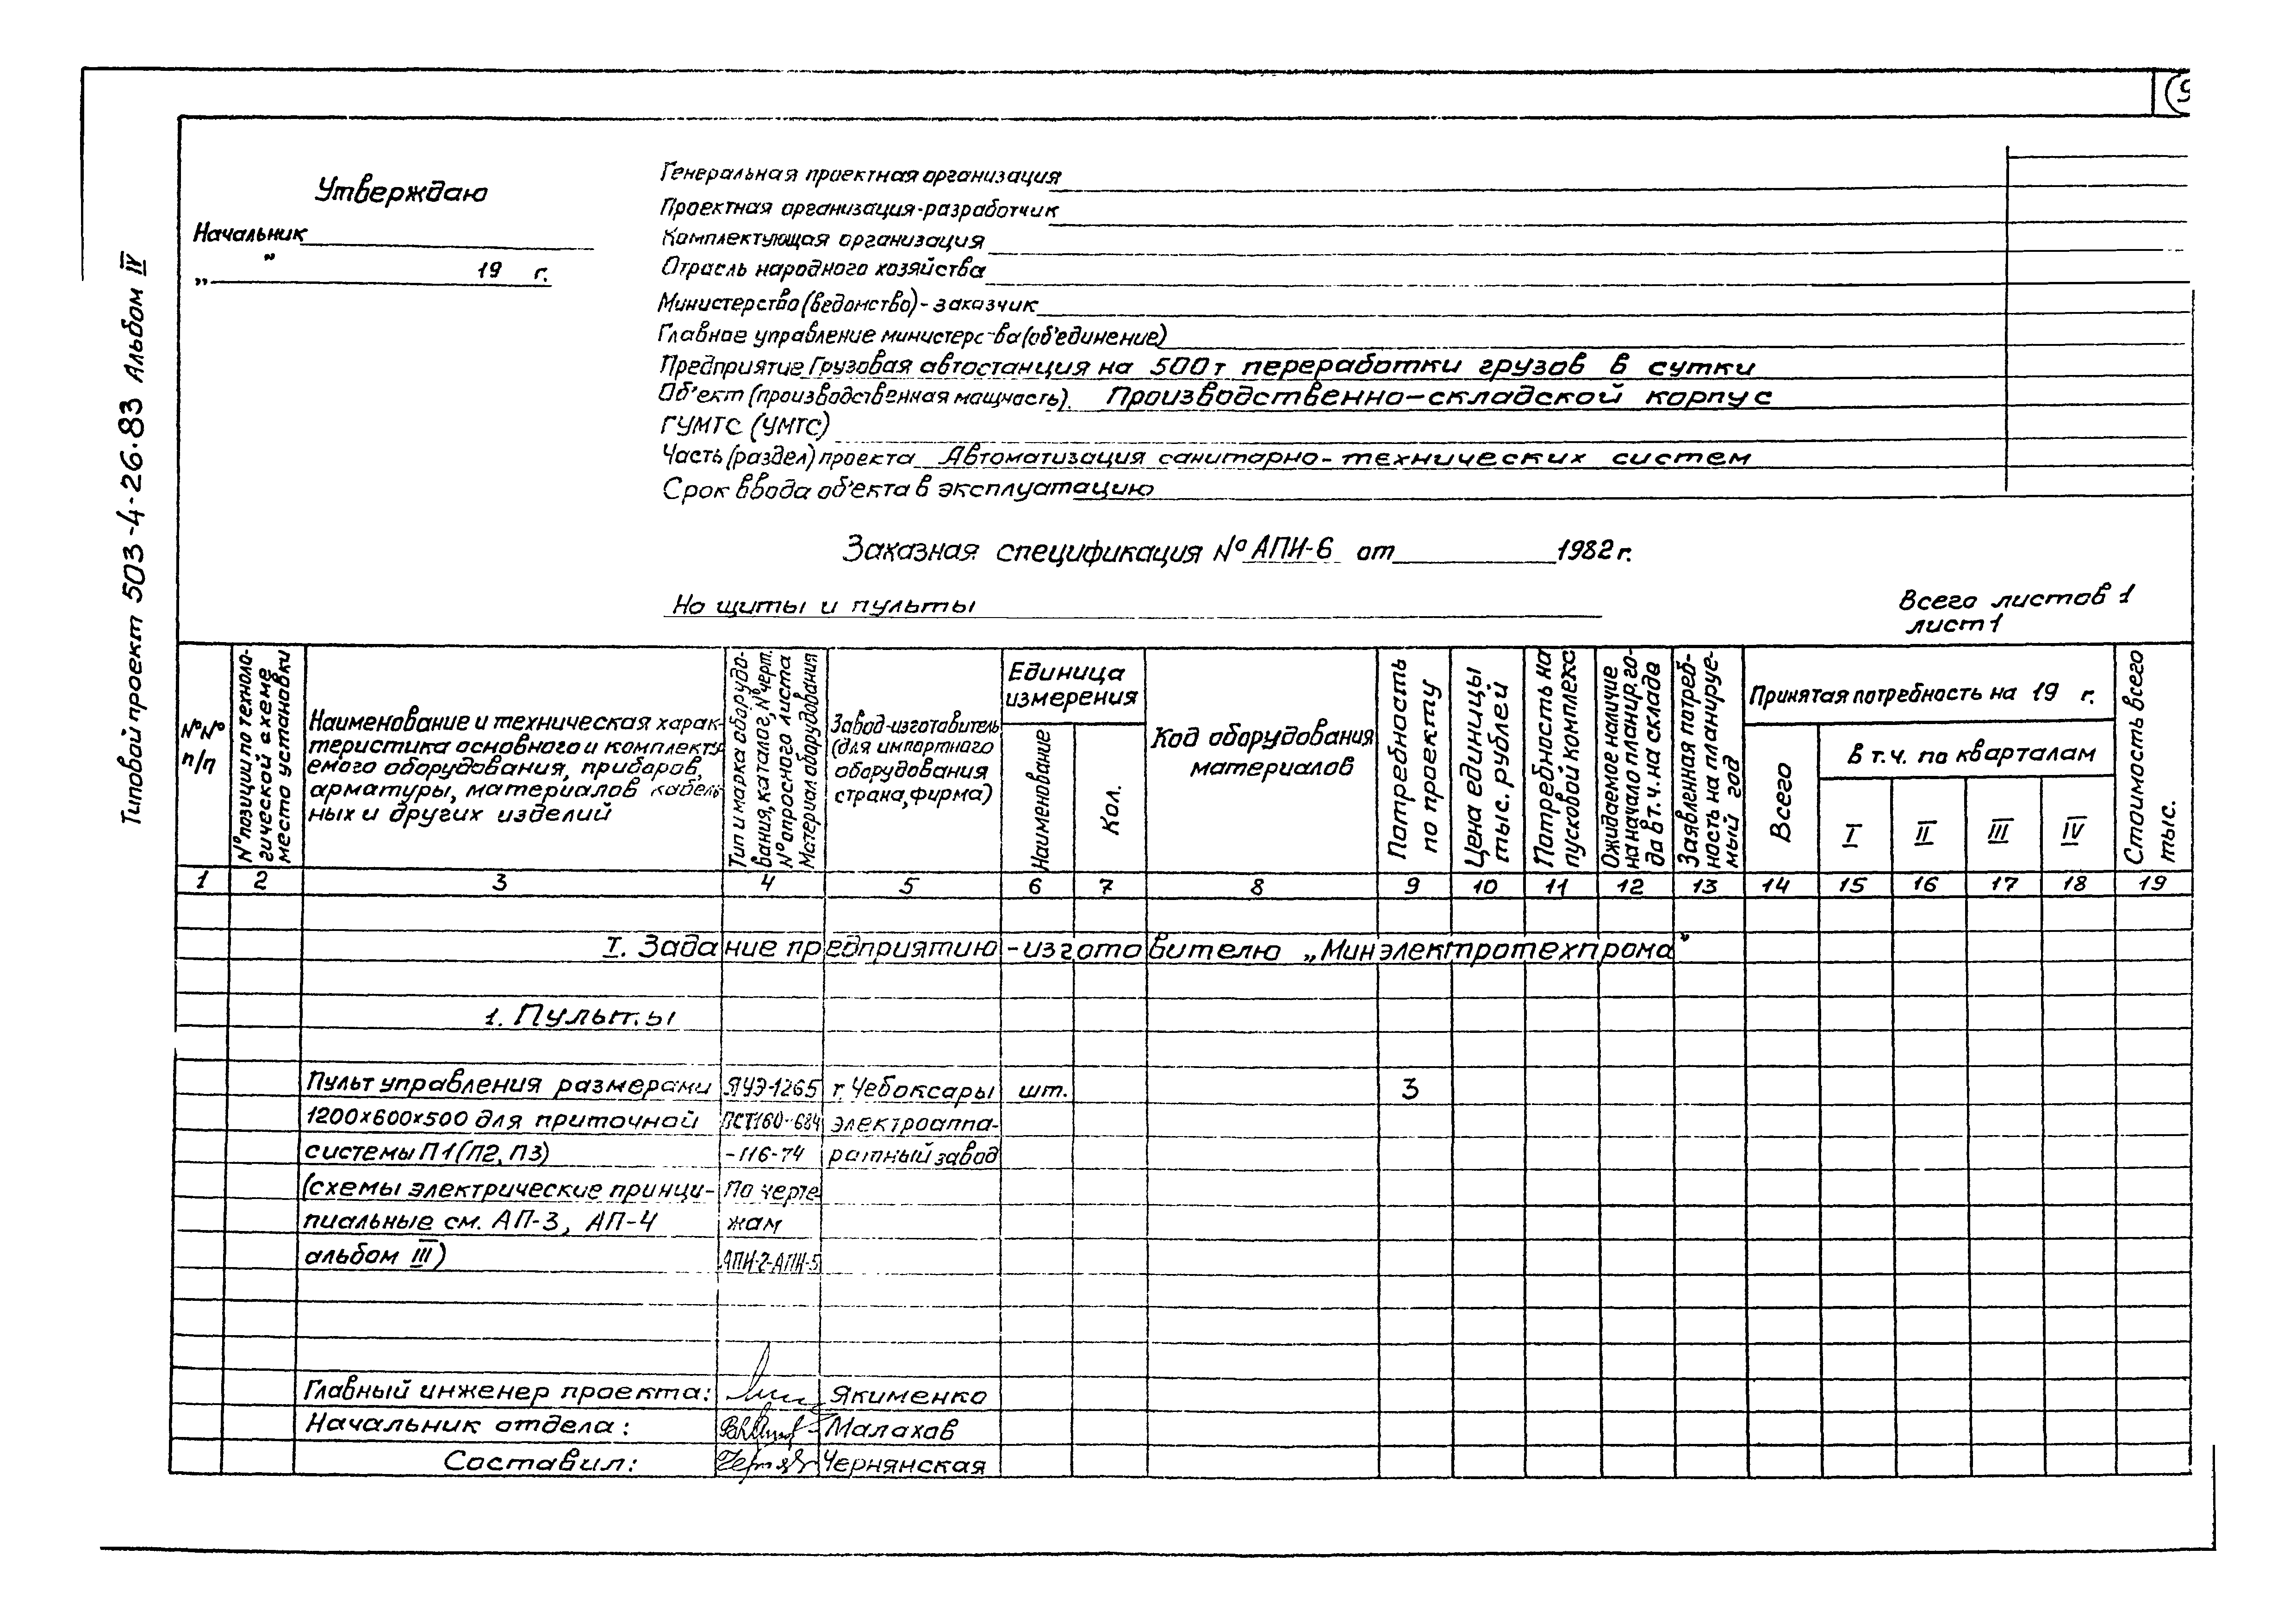 Типовой проект 503-4-26.83 Альбом IV
Утверждаю
Начальник
„ “ 19 г.
Генеральная проектная организация
Проектная организация-разработчик
Комплектующая организация
Отрасль народного хозяйства
Министерство (ведомство)- заказчик
Главное управление министерс-ва (об'единение)
Предприятие Грузовая автостанция на 500т переработки грузов в сутки
Об'ект (производственная мощность). Производственно-складской корпус
ГУМТС (УМТС)
Часть (раздел) проекта Автоматизация санитарно-технических систем
Срок ввода об'екта в эксплуатацию
Заказная спецификация №АПИ-6 от 1982г.
На щиты и пульты
Всего листов 1
лист 1
№№
п/п
№ позиции по техноло-
гической схеме
место установки
Наименование и техническая харак-
теристика основного и комплекту
емого оборудования, приборов,
арматуры, материалов кабель
ных и других изделий
Тип и марка оборудо-
вания, каталог, № черт.
№ опросного листа
Материал оборудования
Завод-изготовитель
(для импортного
оборудования
страна, фирма)
Единица
измерения
Наименование
Кол.
Код оборудования
материалов
Потребность
по проекту
Цена единицы
тыс. рублей
Потребность на
пусковой комплекс
Ожидаемое наличие
на начало планир. го-
да в т.ч. на складе
Заявленная потреб-
ность на планируе-
мый год
Принятая потребность на 19 г.
Всего
в т.ч. по кварталам
I II III IV
Стоимость всего
тыс.
1 2 3 4 5 6 7 8 9 10 11 12 13 14 15 16 17 18 19
I. Задание предприятию-изготовителю „Минэлектротехпрома”
1. Пульты
Пульт управления размерами ЯУЭ-1265 г. Чебоксары шт. 3
1200х600х500 для приточной ОСТ160-684 электроаппа-
системы П1(П2, П3) -116-74 ратный завод
(схемы электрические принци- По черте
пиальные см. АП-3, АП-4 жам
альбом III) АПИ-2-АПИ-5
Главный инженер проекта: Якименко
Начальник отдела: Малахов
Составил: Чернянская